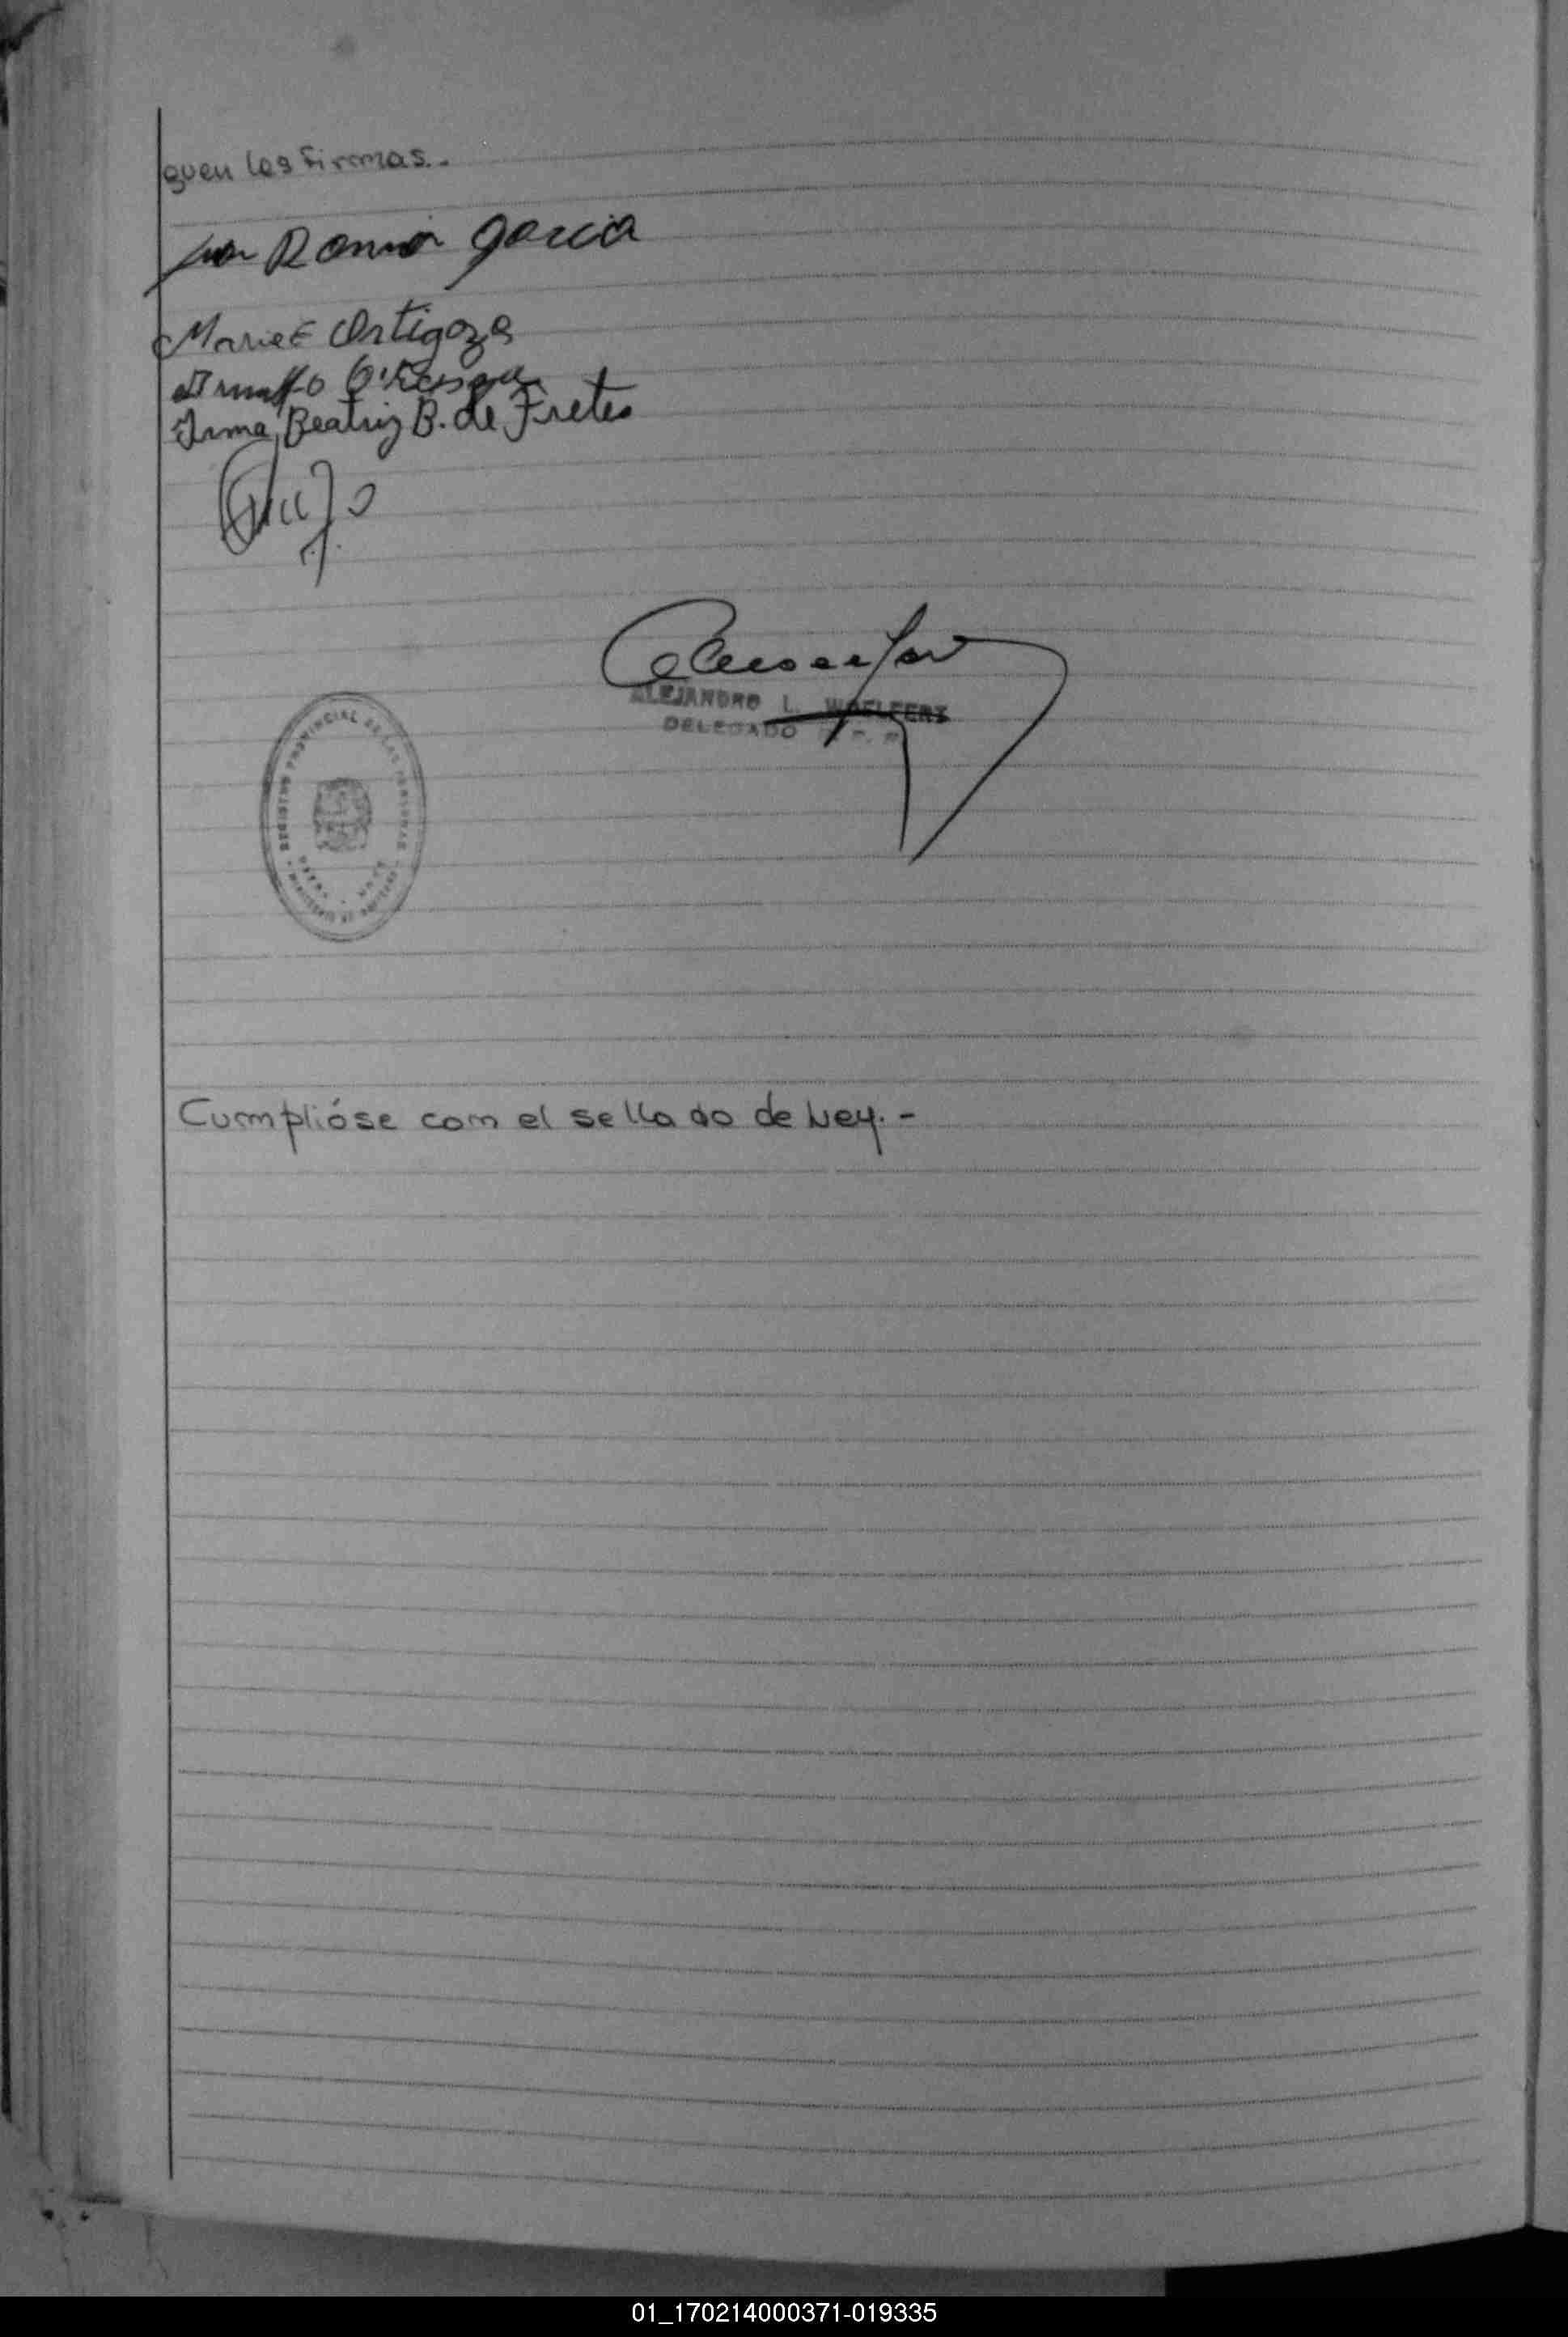 guen las firmas.-
Ramon Garcia
Maria E Ortigoza
Irma Beatriz B. de Fretes
ALEJANDRO L. WOELFERT
DELEGADO
REGISTRO PROVINCIAL DE LAS PERSONAS
Cumplióse com el sellado de Ley.-
01_170214000371-019335